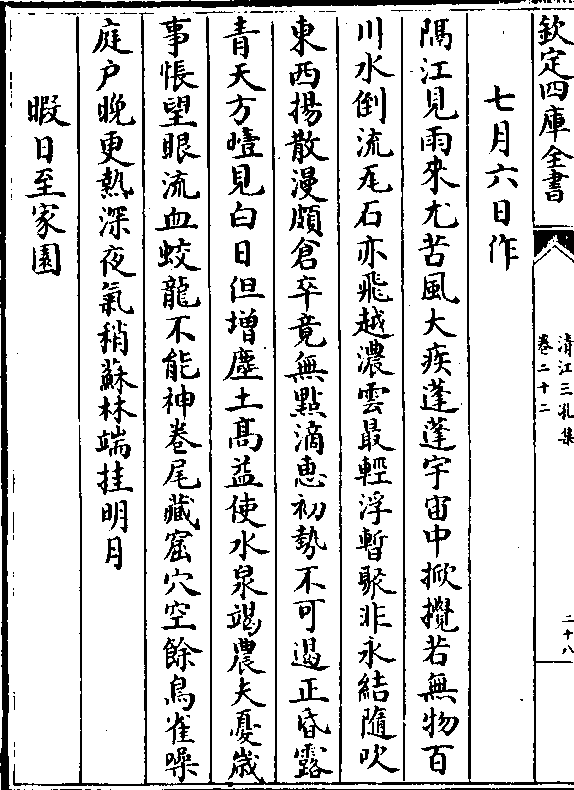 欽定四庫全書
清江三孔集
卷二十二
二十八
七月六日作
隔江見雨來尤苦風大疾蓬蓬宇宙中掀攪若無物百
川水倒流瓦石亦飛越濃雲最輕浮暫聚非永結隨吹
東西揚散漫頗倉卒竟無點滴恵初勢不可遏正昏露
青天方曀見白日但増塵土髙益使水泉竭農夫憂歳
事悵望眼流血蛟龍不能神卷尾藏窟穴空餘鳥雀噪
庭户晚更熱深夜氣稍蘇林端挂明月
暇日至家園